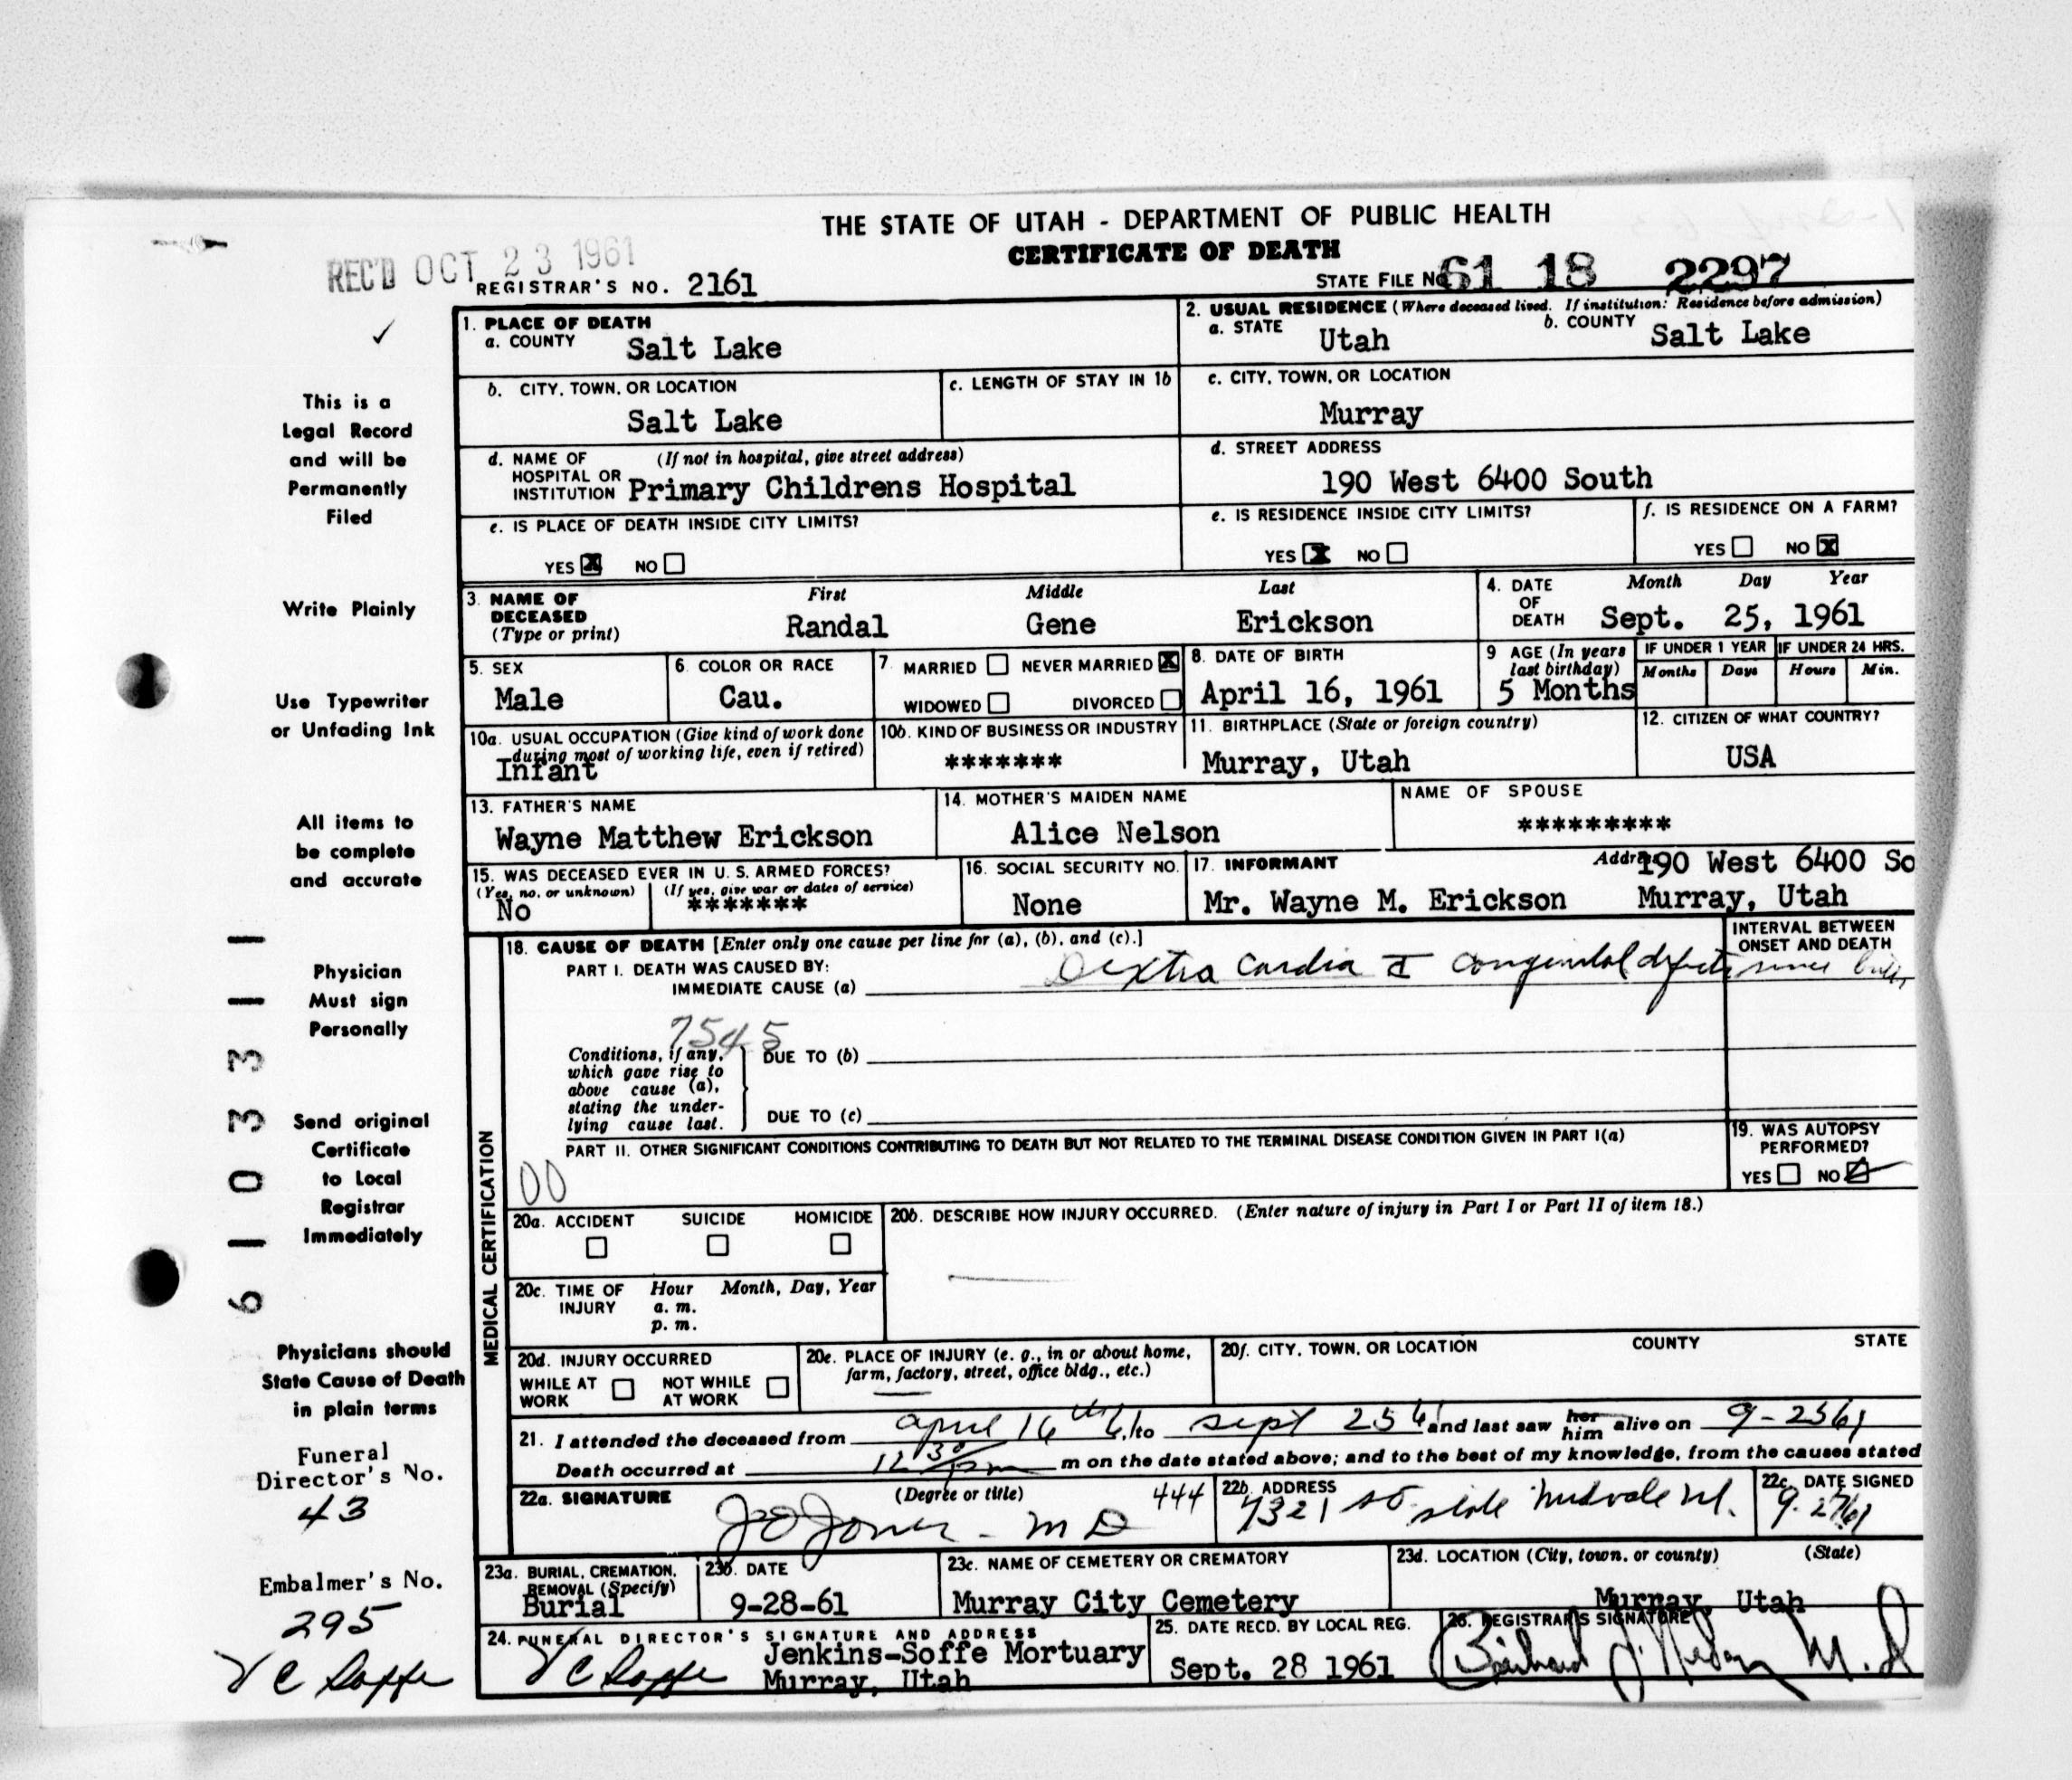 THE STATE OF UTAH - DEPARTMENT OF PUBLIC HEALTH
CERTIFICATE OF DEATH
REC'D OCT 23 1961
REGISTRAR'S NO. 2161
STATE FILE No 61 18 2297
1. PLACE OF DEATH
a. COUNTY Salt Lake
2. USUAL RESIDENCE (Where deceased lived. If institution: Residence before admission)
a. STATE Utah b. COUNTY Salt Lake
b. CITY, TOWN, OR LOCATION Salt Lake
c. LENGTH OF STAY IN 1b
c. CITY, TOWN, OR LOCATION Murray
d. NAME OF HOSPITAL OR INSTITUTION (If not in hospital, give street address) Primary Childrens Hospital
d. STREET ADDRESS 190 West 6400 South
e. IS PLACE OF DEATH INSIDE CITY LIMITS? YES X NO
e. IS RESIDENCE INSIDE CITY LIMITS? YES X NO
f. IS RESIDENCE ON A FARM? YES NO X
3. NAME OF DECEASED (Type or print)
First Middle Last
Randal Gene Erickson
4. DATE OF DEATH Month Day Year
Sept. 25, 1961
5. SEX Male
6. COLOR OR RACE Cau.
7. MARRIED NEVER MARRIED X
WIDOWED DIVORCED
8. DATE OF BIRTH April 16, 1961
9 AGE (In years last birthday) 5 Months
IF UNDER 1 YEAR Months Days
IF UNDER 24 HRS. Hours Min.
10a. USUAL OCCUPATION (Give kind of work done during most of working life, even if retired)
Infant
10b. KIND OF BUSINESS OR INDUSTRY
*******
11. BIRTHPLACE (State or foreign country)
Murray, Utah
12. CITIZEN OF WHAT COUNTRY?
USA
13. FATHER'S NAME
Wayne Matthew Erickson
14. MOTHER'S MAIDEN NAME
Alice Nelson
NAME OF SPOUSE
*********
15. WAS DECEASED EVER IN U. S. ARMED FORCES?
(Yes, no, or unknown) (If yes, give war or dates of service)
No *******
16. SOCIAL SECURITY NO.
None
17. INFORMANT
Mr. Wayne M. Erickson
Address 190 West 6400 So
Murray, Utah
MEDICAL CERTIFICATION
18. CAUSE OF DEATH [Enter only one cause per line for (a), (b), and (c).]
INTERVAL BETWEEN ONSET AND DEATH
PART I. DEATH WAS CAUSED BY:
IMMEDIATE CAUSE (a) Dextra Cardia c̄ congenital defects since birth
7545
Conditions, if any, which gave rise to above cause (a), stating the underlying cause last.
DUE TO (b)
DUE TO (c)
PART II. OTHER SIGNIFICANT CONDITIONS CONTRIBUTING TO DEATH BUT NOT RELATED TO THE TERMINAL DISEASE CONDITION GIVEN IN PART I(a)
00
19. WAS AUTOPSY PERFORMED?
YES NO
20a. ACCIDENT SUICIDE HOMICIDE
20b. DESCRIBE HOW INJURY OCCURRED. (Enter nature of injury in Part I or Part II of item 18.)
20c. TIME OF INJURY Hour a. m. p. m. Month, Day, Year
20d. INJURY OCCURRED
WHILE AT WORK NOT WHILE AT WORK
20e. PLACE OF INJURY (e. g., in or about home, farm, factory, street, office bldg., etc.)
20f. CITY, TOWN, OR LOCATION COUNTY STATE
21. I attended the deceased from April 16th 61, to Sept 25 61 and last saw her him alive on 9-2561
Death occurred at 12 30 pm m on the date stated above; and to the best of my knowledge, from the causes stated
22a. SIGNATURE (Degree or title) 444
J O Jones - M D
22b. ADDRESS
7321 so state Midvale Ut.
22c. DATE SIGNED
9-2761
23a. BURIAL, CREMATION, REMOVAL (Specify)
Burial
23b. DATE
9-28-61
23c. NAME OF CEMETERY OR CREMATORY
Murray City Cemetery
23d. LOCATION (City, town, or county) (State)
Murray, Utah
24. FUNERAL DIRECTOR'S SIGNATURE AND ADDRESS
V C Soffe Jenkins-Soffe Mortuary
Murray, Utah
25. DATE RECD. BY LOCAL REG.
Sept. 28 1961
26. REGISTRAR'S SIGNATURE
M.D
This is a
Legal Record
and will be
Permanently
Filed
Write Plainly
Use Typewriter
or Unfading Ink
All items to
be complete
and accurate
Physician
Must sign
Personally
Send original
Certificate
to Local
Registrar
Immediately
Physicians should
State Cause of Death
in plain terms
Funeral
Director's No.
43
Embalmer's No.
295
V C Soffe
6 1 0 3 3 1 1